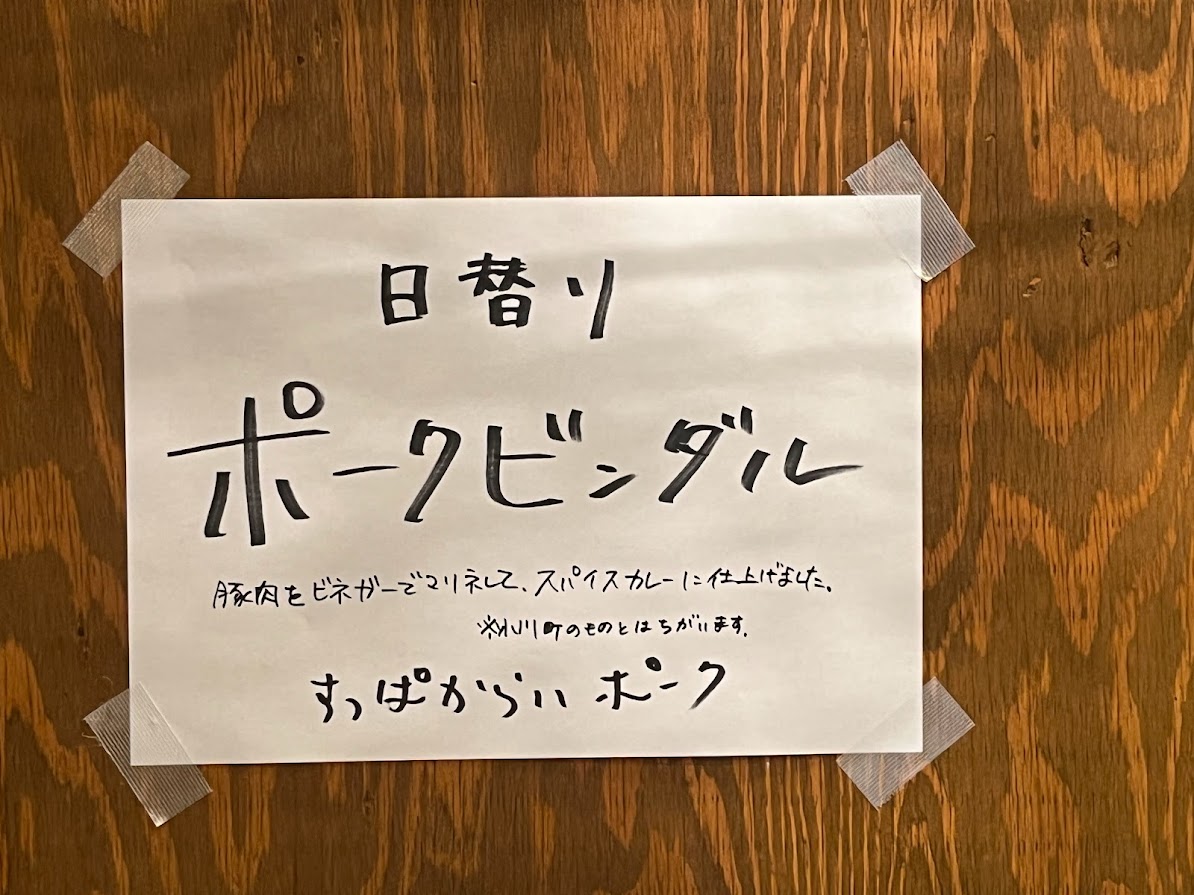 日替り
ポークビンダル
豚肉をビネガーでマリネして、スパイスカレーに仕上げました。
※小川町のものとはちがいます。
すっぱからい ポーク